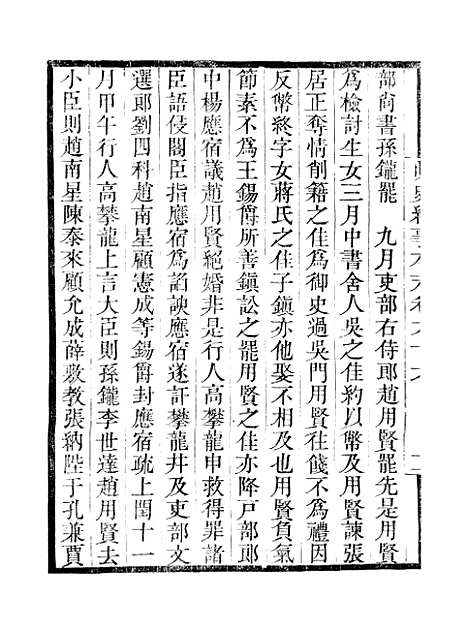 部尚書孫鑨罷　九月吏部右侍郎趙用賢罷先是用賢
爲檢討生女三月中書舍人吳之佳約以幣及用賢諫張
居正奪情削籍之佳爲御史過吳門用賢往餞不爲禮因
反幣終字女蔣氏之佳子鎭亦他娶不相及也用賢負氣
節素不爲王錫爵所善鎭訟之罷用賢之佳亦降戶部郎
中楊應宿議趙用賢絕婚非是行人高攀龍申救得罪諸
臣語侵閣臣指應宿爲諂諛應宿遂訐攀龍幷及吏部文
選郎劉四科趙南星顧憲成等錫爵封應宿疏上閏十一
月甲午行人高攀龍上言大臣則孫鑨李世達趙用賢去
小臣則趙南星陳泰來顧允成薛敷敎張納陛于孔兼賈